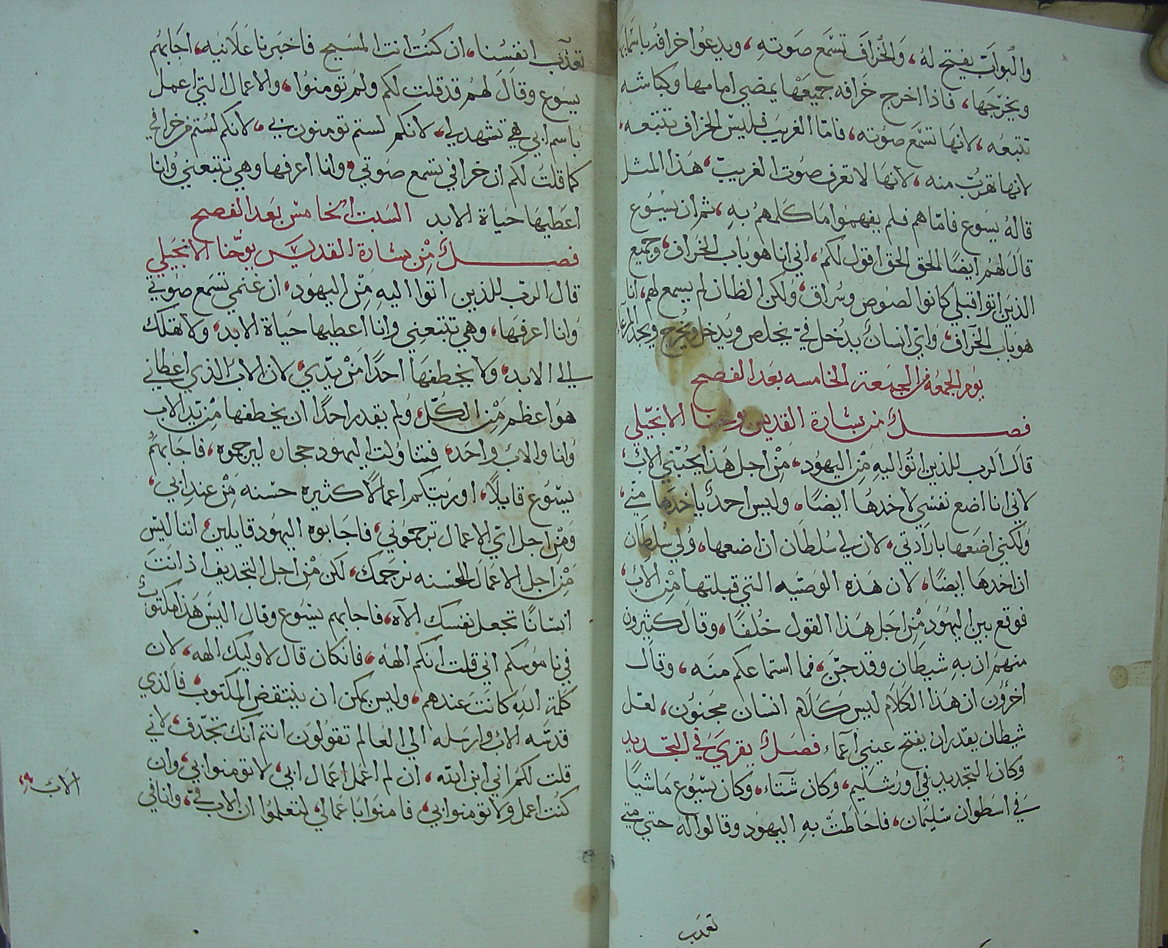 والبواب يفتح له، والخراف تسمع صوته، ويدعوا خرافه باسمايها
ويخرجها، فاذا اخرج خرافه جميعها يمضي امامها وكباشه
تتبعه، لانها تسمع صوته، فامّا الغريب فليس الخراف تتبعه،
لانها تهرب منه، لانها لا تعرف صوت الغريب، هذا المثل
قاله يسوع فامّا هم فلم يفهموا ما كلمهم به، ثم ان يسوع
قال لهم ايضًا الحق الحق اقول لكم، اني انا هو باب الخراف، وجميع
الذين اتوا قبلي كانوا لصوص وسراق، ولكن الضان لم يسمع لهم، انا
هو باب الخراف، وايّ انسان يدخل فيّ يخلص ويدخل ويخرج ويجد
يوم الجمعة من الجمعة الخامسه بعد الفصح
فصل من بشارة القديس يوحنا الانجيلي
قال الرب للذين اتوا اليه مِن اليهود، من اجل هذا يحبني الاب،
لاني انا اضع نفسي لاخدها ايضًا، وليس احدٌ ياخدها مني،
ولكني اضعها بارادتي، لان لي سلطان ان اضعها، ولي سلطان
ان اخدها ايضًا، لان هذه الوصيه التي قبلتها من الاب،
فوقع بين اليهود من اجل هذا القول خلفًا، وقال كثيرون
منهم ان به شيطان وقد جنّ، فما استماعكم منه، وقال
اخرون ان هذا الكلام ليس كلام انسان مجنون، لعل
شيطان يقدر ان يفتح عيني اعماء فصل يقري في التجديد
وكان التجديد في اورشليم، وكان شتاء، وكان يسوع ماشيًا
في اسطوان سليمان، فاحاطت به اليهود وقالوا له حتي متي
تعذب
تعذب انفسنا، ان كنت انت المسيح فاخبرنا علانيه، اجابهم
يسوع وقال لهم قد قلت لكم ولم تومنوا، والاعمال التي اعمل
باسم ابي هي تشهد لي، لانكم لستم تومنون بي، لانكم لستم من خرافي
كما قلت لكم ان خرافي تسمع صوتي، وانا اعرفها وهي تتبعني وانا
اعطيها حياة الابد السبت الخامس بعد الفصح
فصل مِن بشارة القديس يوحنا الانجيلي
قال الرب للذين اتوا اليه مِن اليهود، ان غنمي تسمع صوتي
وانا اعرفها، وهي تتبعني وانا اعطيها حياة الابد، ولا تهلك
الي الابد، ولا يخطفها احدًا من يدي، لان الاب الذي اعطاني
هو اعظم مِن الكل، ولم يقدر احدًا ان يخطفها من يد الاب
وانا والاب واحد، فتناولت اليهود حجاره ليرجموه، فاجابهم
يسوع قايلاً، اوريتكم اعمالاً كثيره حسنه مِن عند ابي،
ومن اجل ايّ الاعمال ترجموني، فاجابوه اليهود قايلين، اننا ليس
من اجل الاعمال الحسنه نرجمك، لكن من اجل التجديف اذ انت
انسانًا تجعل نفسك الاه، فاجابهم يسوع وقال اليس هذا مكتوب
في ناموسكم اني قلت انكم الهه، فان كان قال لاوليك الهه، لان
كلمة الله كانت عندهم، وليس يمكن ان ينتقض المكتوب، فالذي
قدسه الاب وارسله الي العالم تقولون انتم انك تجدّف، لاني
قلت لكم اني ابن الله، ان لم اعمل اعمال ابي، لا تومنوا بي، وان
كنت اعمل ولا تومنوا بي، فامنوا باعمالي لتعلموا ان الاب فيّ، وانا في
الاب